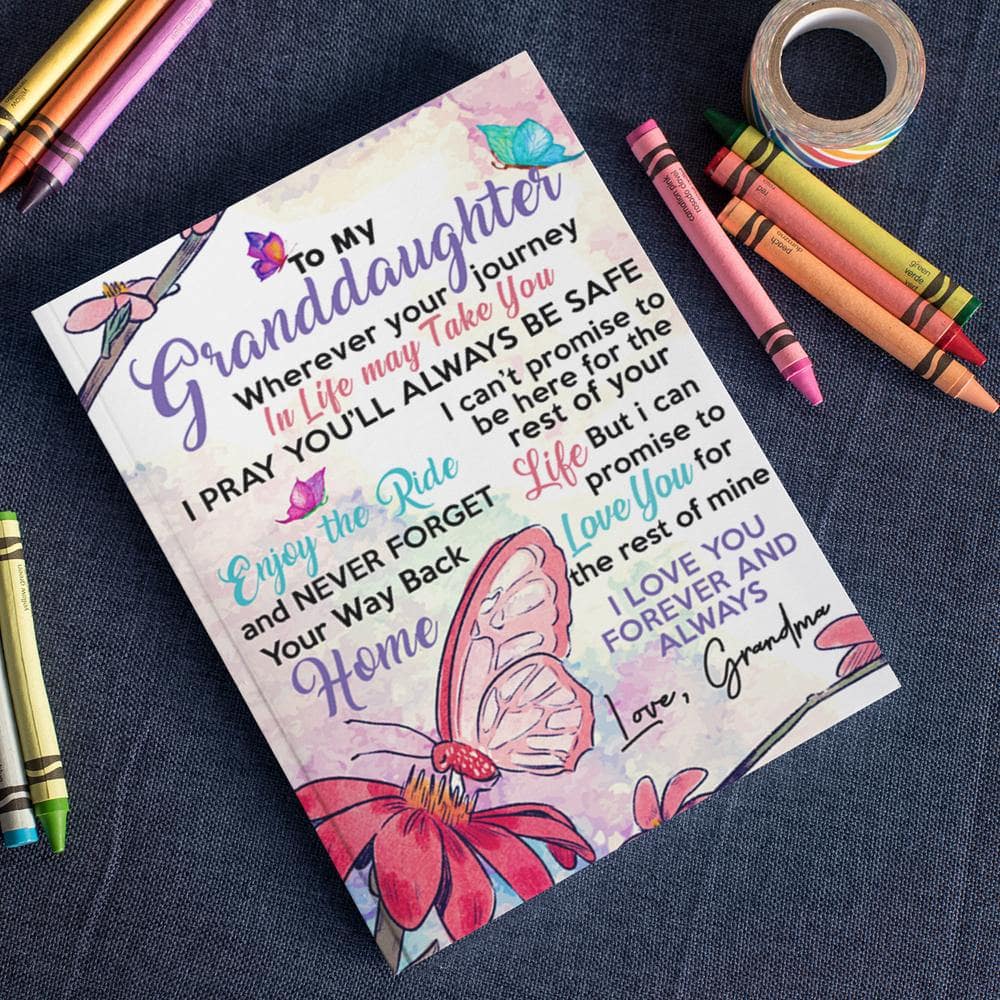 TO MY
Granddaughter
Wherever your journey
In Life may Take You
I PRAY YOU'LL ALWAYS BE SAFE
Enjoy the Ride
and NEVER FORGET
Your Way Back
Home
I can't promise to
be here for the
rest of your
Life But i can
promise to
Love You for
the rest of mine
I LOVE YOU
FOREVER AND
ALWAYS
Love, Grandma
carnation pink
rosado clavel
red
peach
durazno
green
verde
yellow green